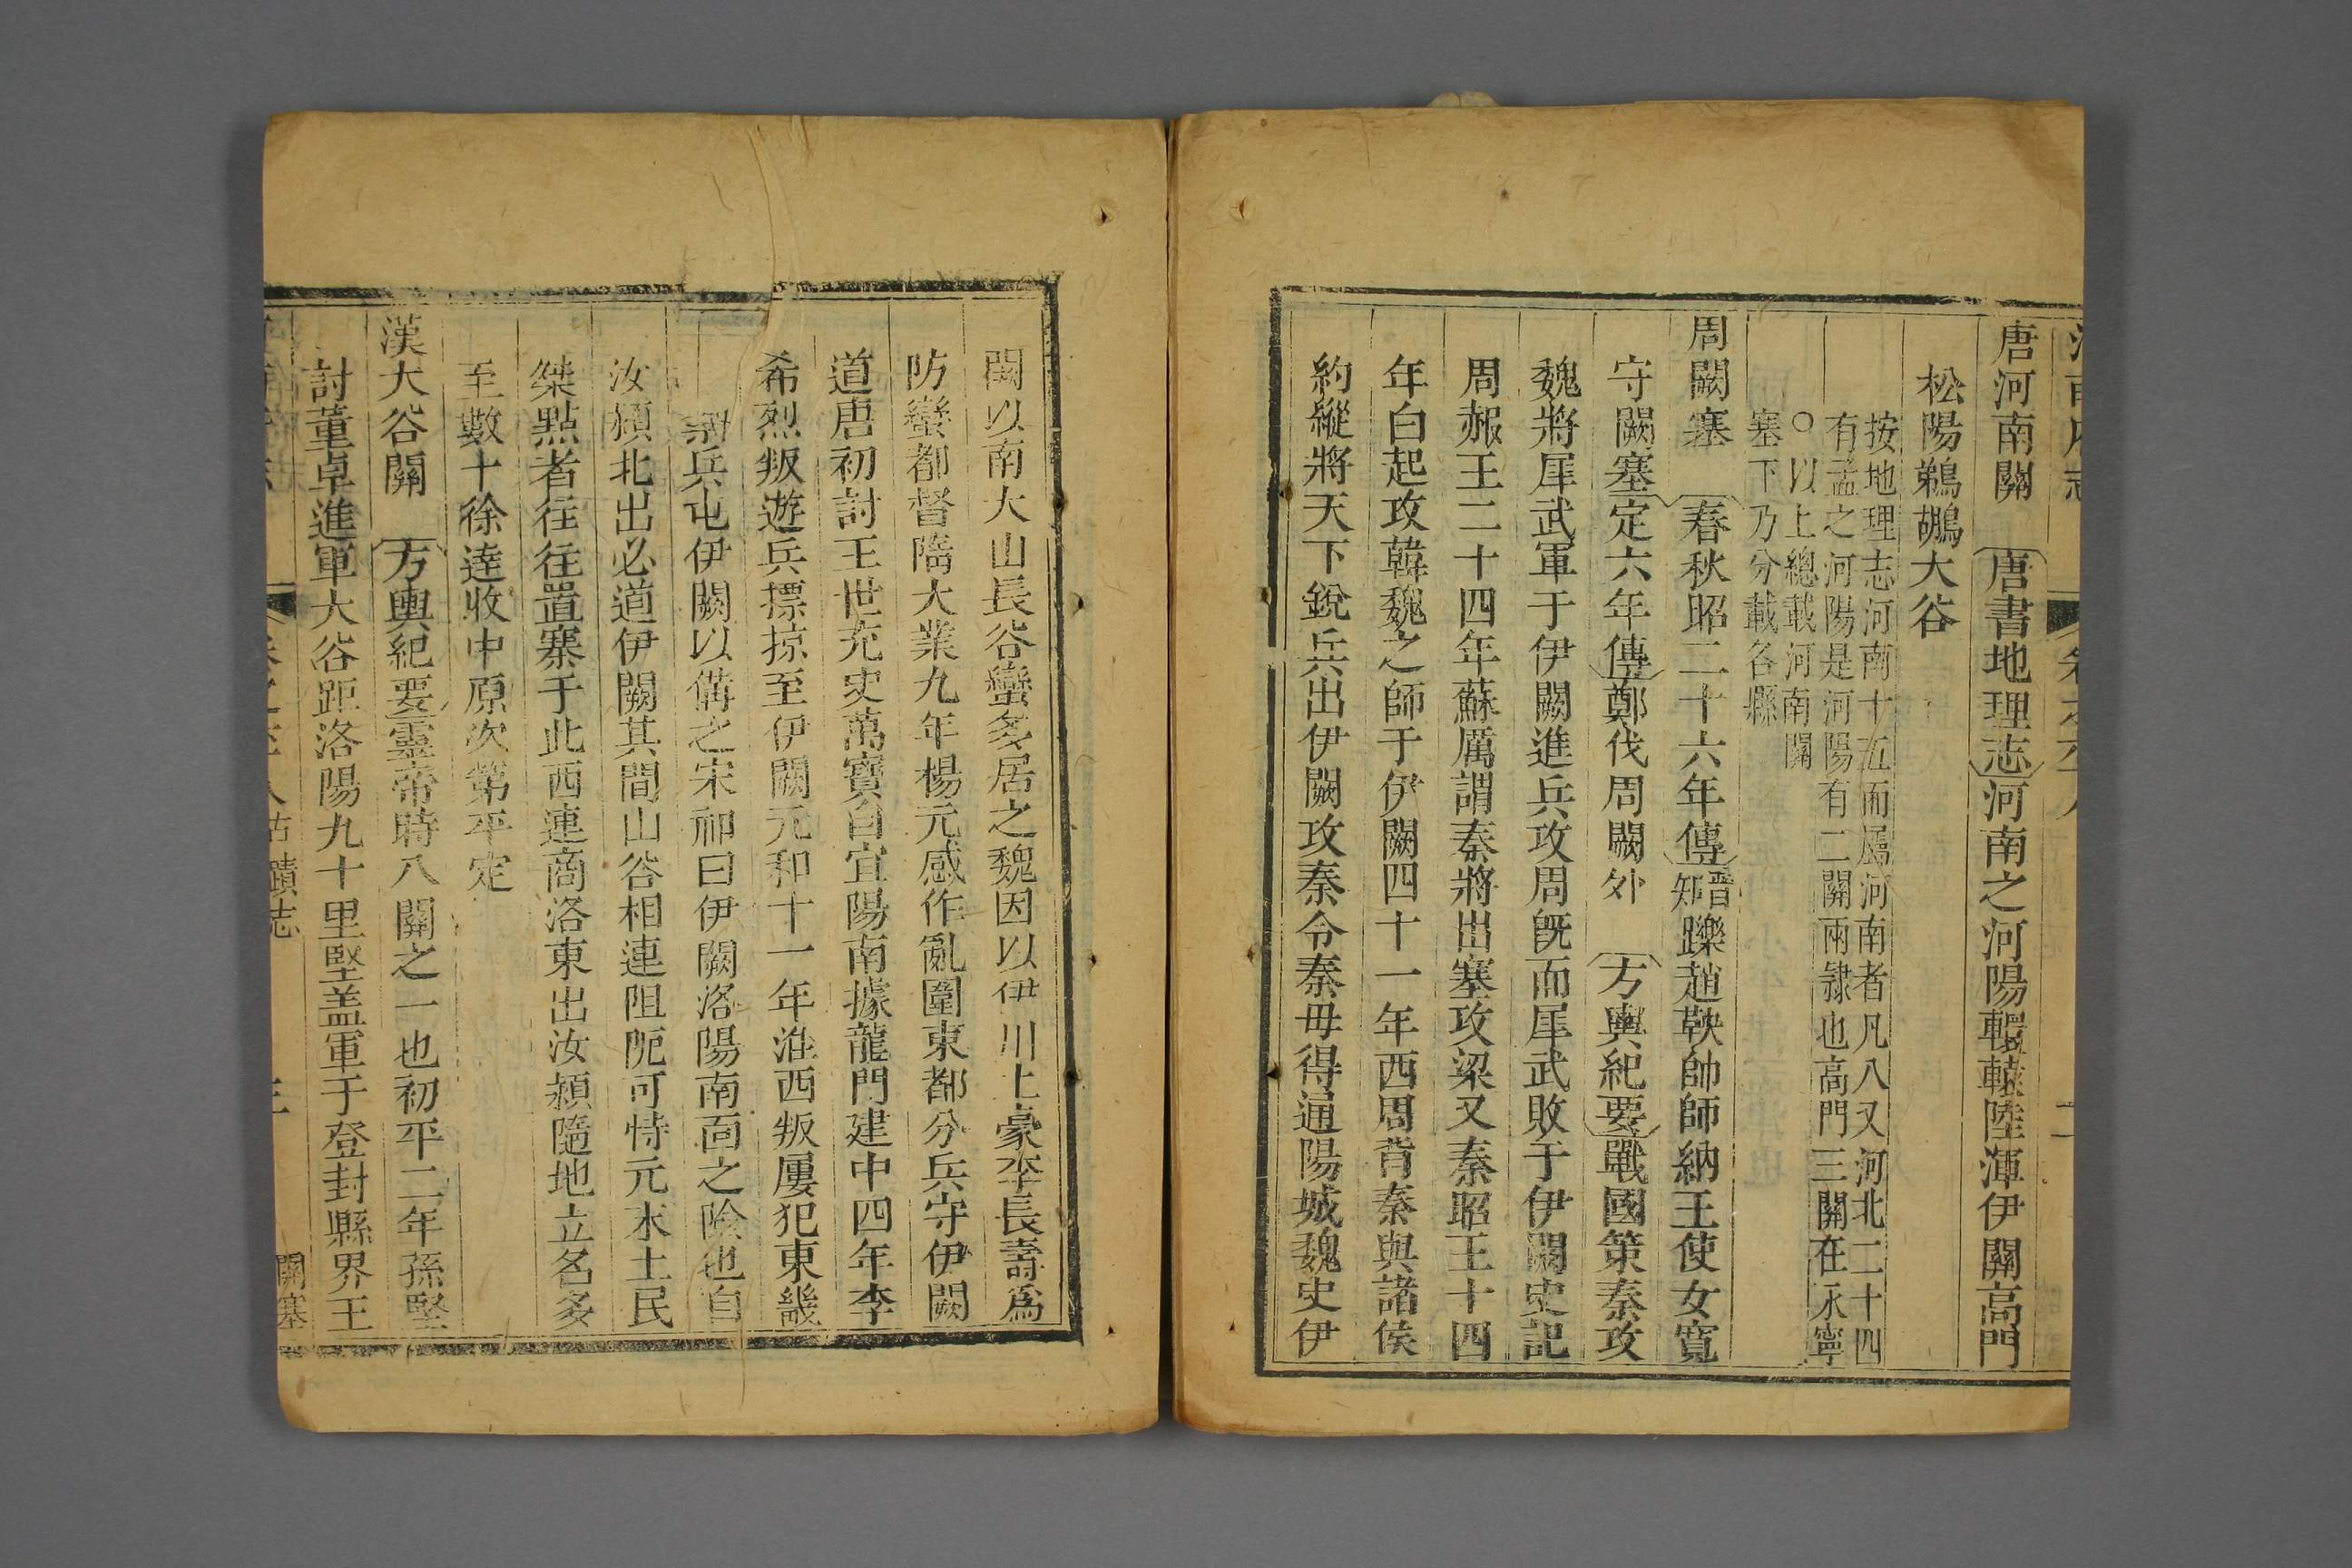 唐河南關 唐書地理志河南之河陽轘轅陸渾伊關高門
松陽鵜鶘大谷
按地理志河南十五而屬河南者凡八又河北二十四
有孟之河陽是河陽有二關兩隸也高門三關在永寧
○以上總載河南關
塞下乃分載各縣
周闕塞 春秋昭二十六年傳晉知躒趙鞅帥師納王使女寬
守闕塞定六年傳鄭伐周闕外 方輿紀要戰國策秦攻
魏將犀武軍于伊闕進兵攻周旣而犀武敗于伊闕史記
周赧王二十四年蘇厲謂秦將出塞攻梁又秦昭王十四
年白起攻韓魏之師于伊闕四十一年西周背秦與諸侯
約縱將天下銳兵出伊闕攻秦令秦毋得通陽城魏史伊
闕以南大山長谷蠻多居之魏因以伊川土豪李長壽爲
防蠻都督隋大業九年楊元感作亂圍東都分兵守伊闕
道唐初討王世充史萬寶自宜陽南據龍門建中四年李
希烈叛遊兵摽掠至伊闕元和十一年淮西叛屢犯東畿
兵屯伊闕以備之宋祁曰伊闕洛陽南面之險也自
汝潁北出必道伊闕其間山谷相連阻阨可恃元末土民
桀點者往往置寨于此西連商洛東出汝潁隨地立名多
至數十徐逹收中原次第平定
漢大谷關 方輿紀要靈帝時八關之一也初平二年孫堅
討董卓進軍大谷距洛陽九十里堅葢軍于登封縣界王
古蹟志
關塞